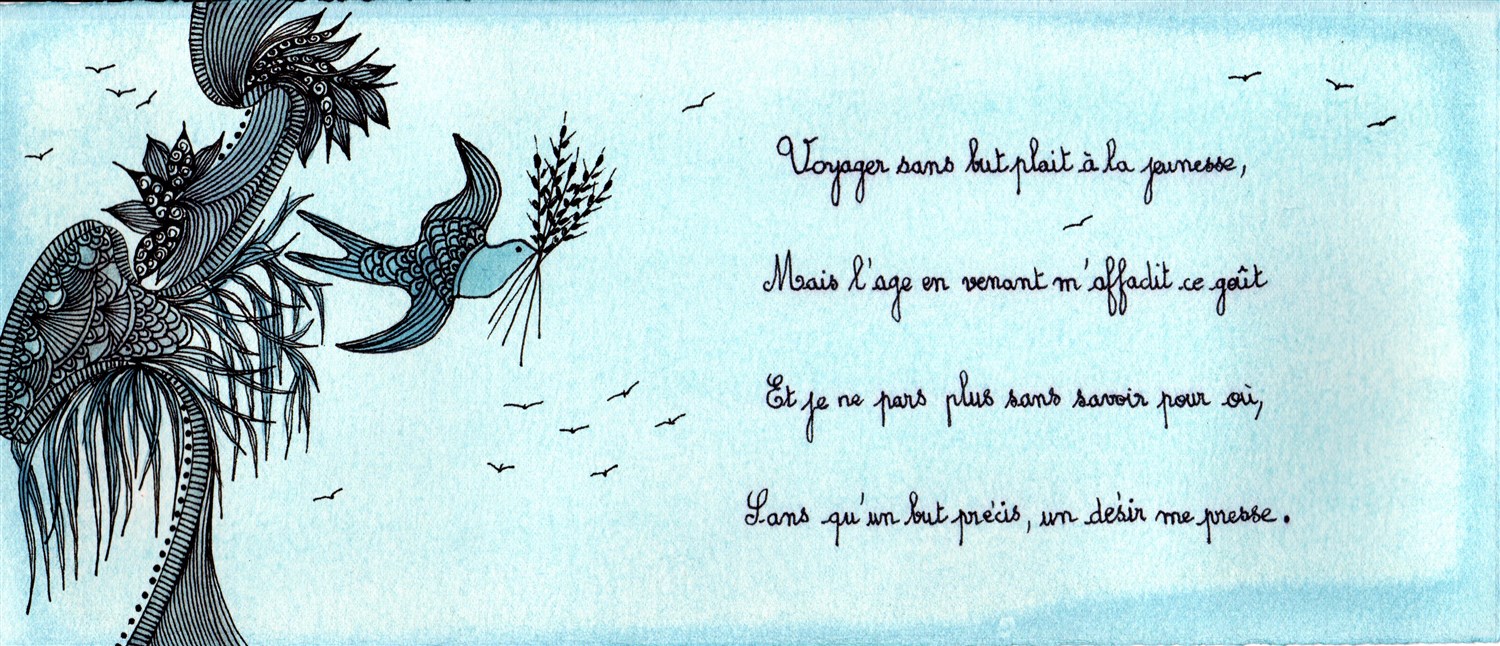 Voyager sans but plait à la jeunesse,
Mais l'age en venant m'affadit ce goût
Et je ne pars plus sans savoir pour où,
Sans qu'un but précis, un désir me presse.